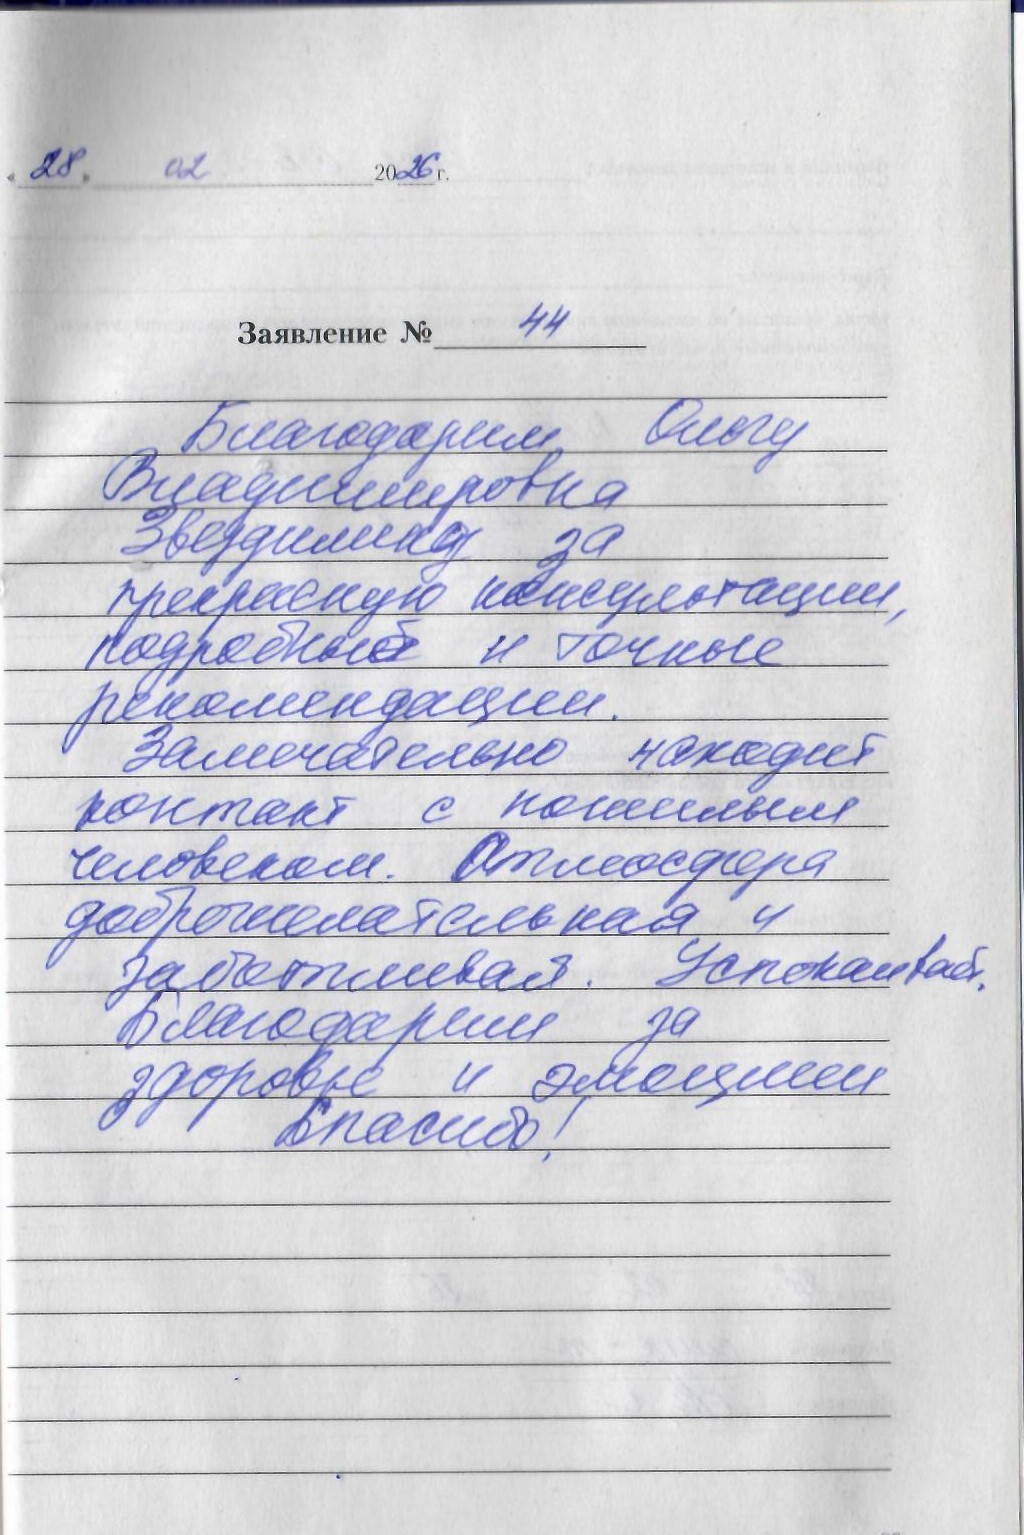 « 28 » 02 2026 г.
Заявление № 44
Благодарим Ольгу
Владимировна
за
прекрасную консультации,
подробные и точные
рекомендации.
Замечательно находит
контакт с пожилым
человеком. Атмосфера
доброжелательная и
заботливая. Успокаивает.
Благодарим за
здоровье и эмоции
Спасибо!